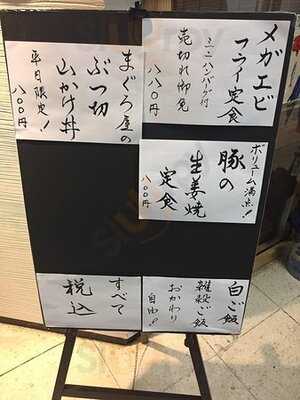 メガエビ
フライ定食
ミニハンバーグ付
売切れ御免
八八〇円
まぐろ屋の
ぶつ切
山かけ丼
平日限定!
八〇〇円
ボリューム満点!!
豚の
生姜焼
定食
八〇〇円
白ご飯
雑穀ご飯
おかわり
自由!!
すべて
税込